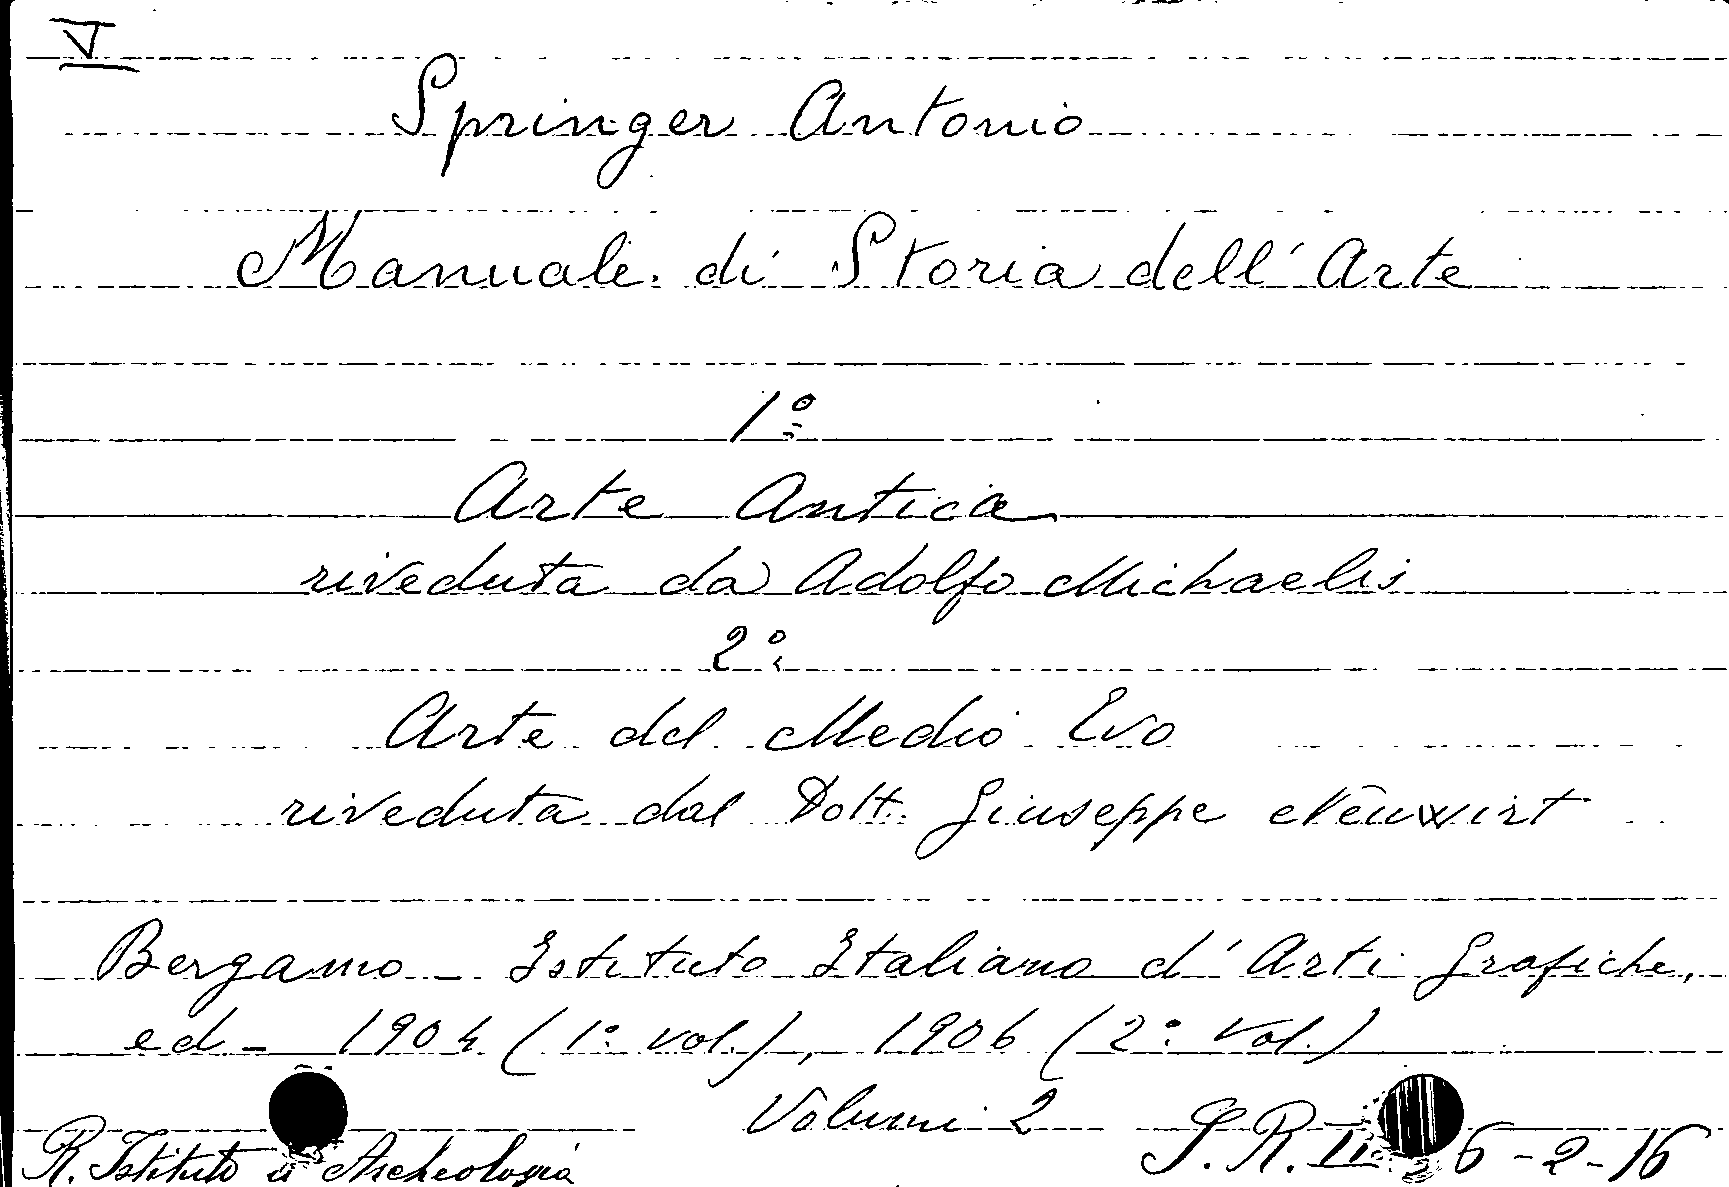 V
Springer Antonio
Manuale di Storia dell'Arte
1º
Arte Antica
riveduta da Adolfo Michaelis
2º
Arte del Medio Evo
riveduta dal Dott. Giuseppe Neuwirt
Bergamo - Istituto Italiano d'Arti Grafiche,
ed - 1904 (1º vol.), 1906 (2º Vol.)
Volumi 2
R. Istituto di Archeologia S. R. II 6-2-16